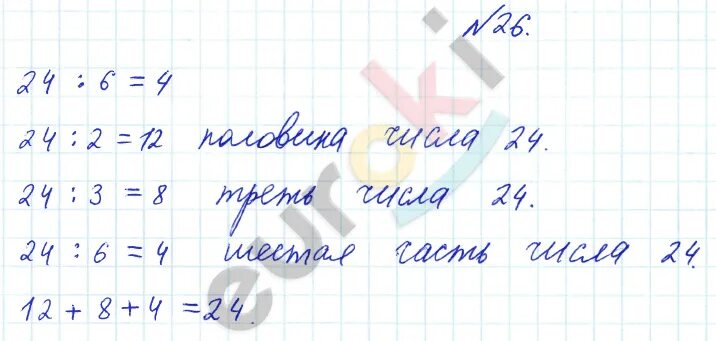 №26.
24 : 6 = 4
24 : 2 = 12 половина числа 24.
24 : 3 = 8 треть числа 24.
24 : 6 = 4 шестая часть числа 24.
12 + 8 + 4 = 24.
euroki